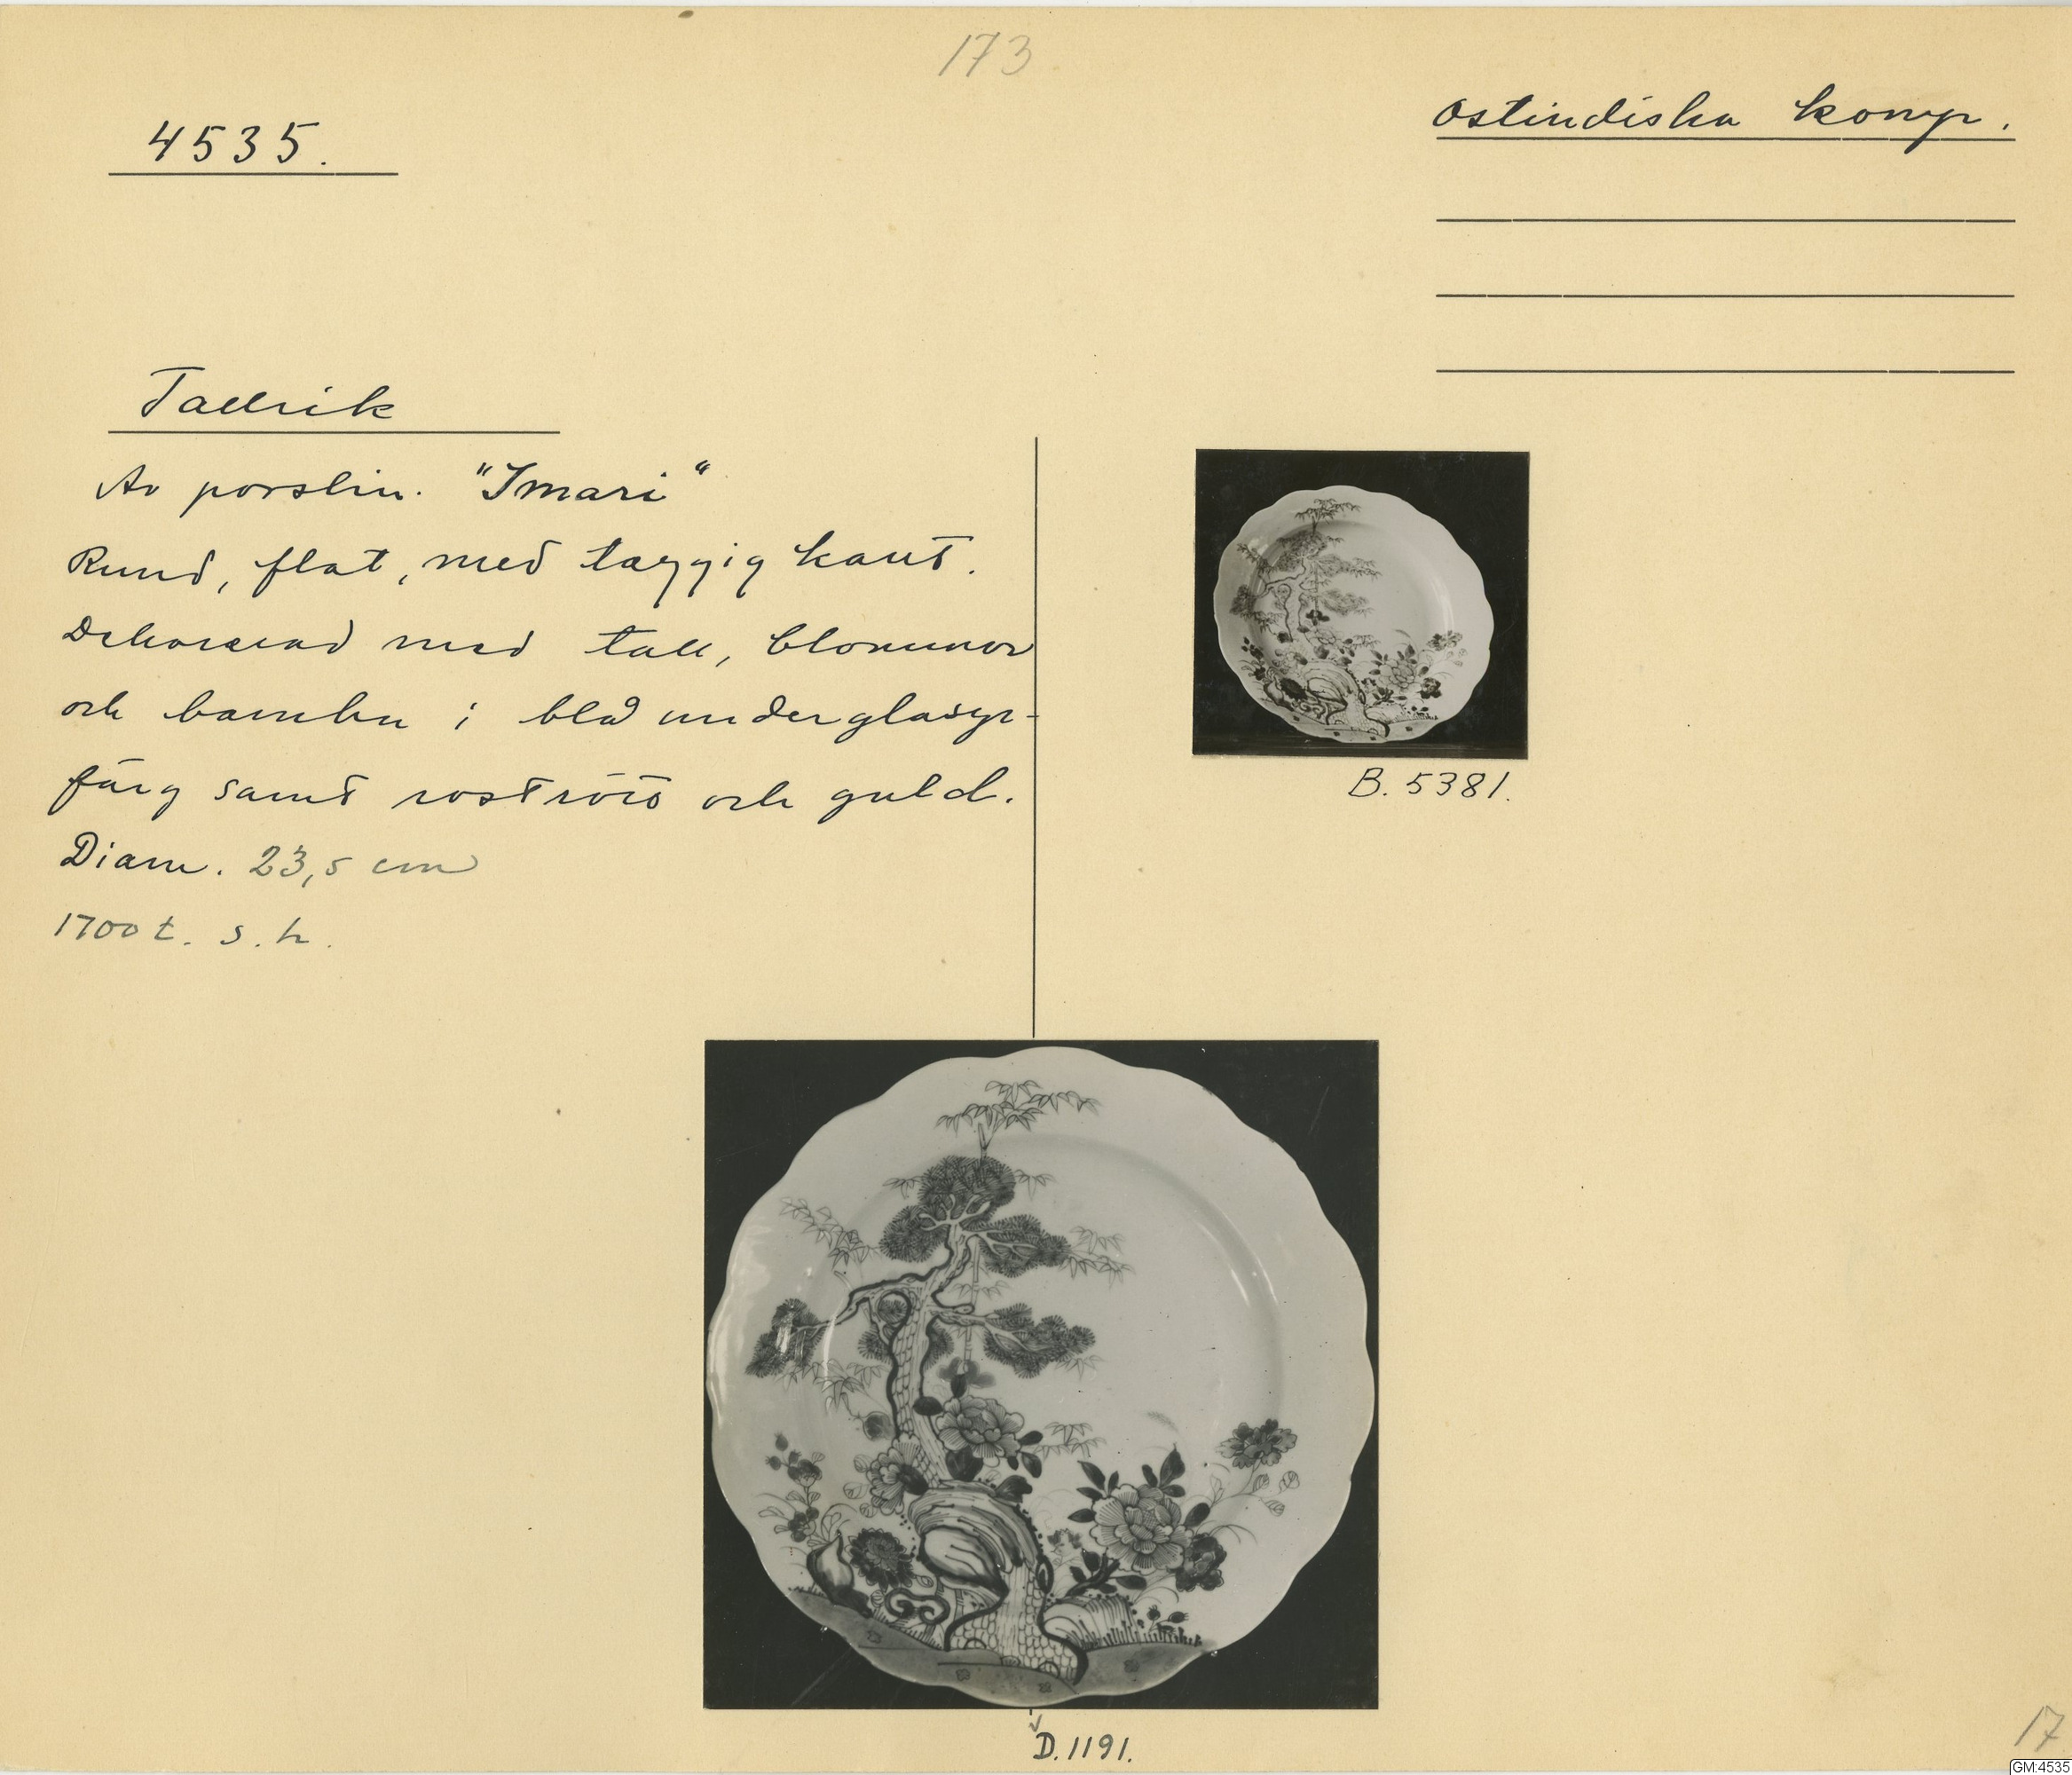 173
4535.
Ostindiska komp.
Tallrik
Av porslin. "Imari"
Rund, flat, med taggig kant.
Dekorerad med tall, blommor
och bambu i blå underglasyr-
färg samt rostrött och guld.
Diam. 23,5 cm
1700 t. s. h.
B. 5381.
D. 1191.
17
GM:4535